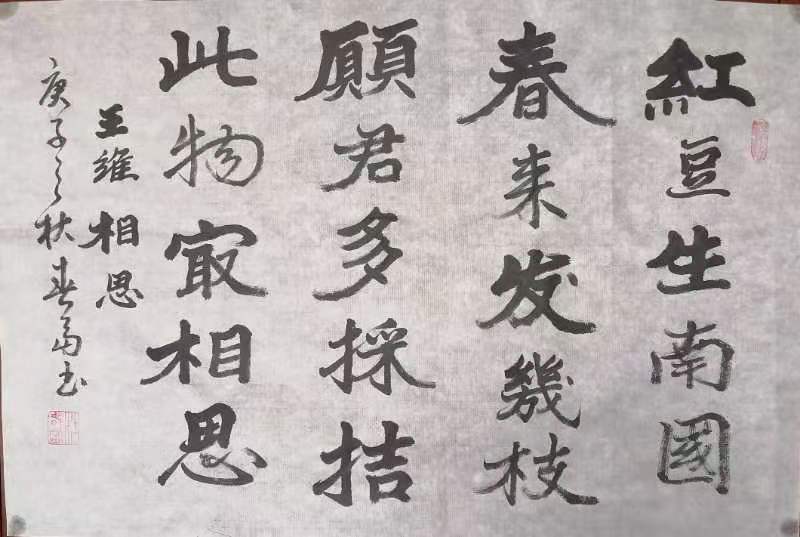 紅豆生南國
春来发幾枝
願君多採拮
此物㝡相思
王維相思
庚子之秋春富书